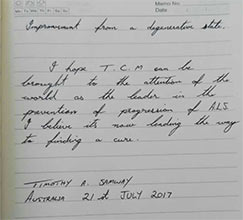 Memo No.
Mo Tu We Th Fr Sa Su
Date
Improvement from a degenerative state.
I hope T.C.M can be
brought to the attention of the
world as the leader in the
prevention of progression of A.L.S.
I believe its now leading the way
to finding a cure.
TIMOTHY A.
AUSTRALIA 21st JULY 2017